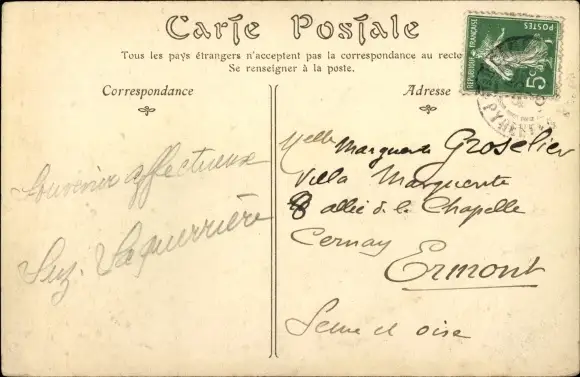 Carte Postale
Tous les pays étrangers n'acceptent pas la correspondance au recto
Se renseigner à la poste.
Correspondance
Adresse
REPUBLIQUE FRANÇAISE
POSTES
5c
PYRENEES
Souvenir affectueux
Suz. Laquerrière
Melle Marguerite Groselier
Villa Marguerite
8 allée d. l. Chapelle
Cernay
Ermont
Seine et oise